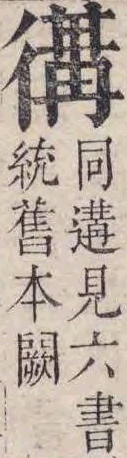 㣄
同遘見六書
統舊本闕